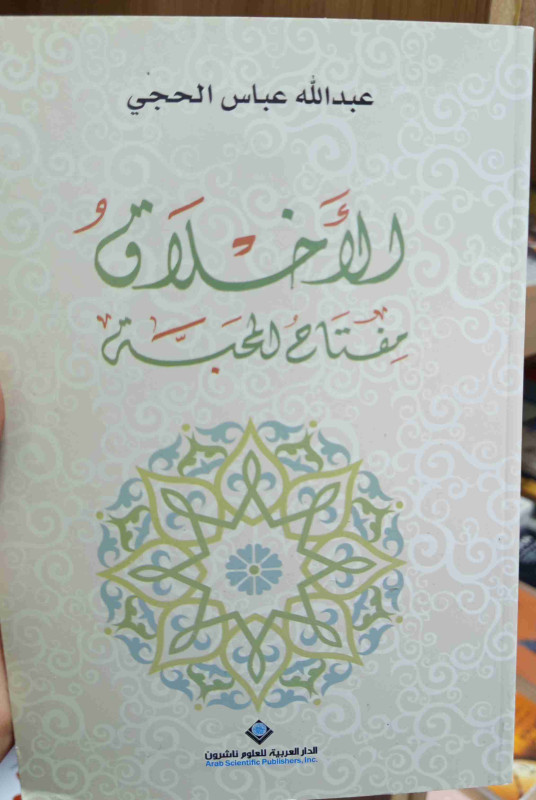 عبدالله عباس الحجي
الأَخْلَاقُ
مِفْتَاحُ المَحَبَّة
الدار العربية للعلوم ناشرون
Arab Scientific Publishers, Inc.